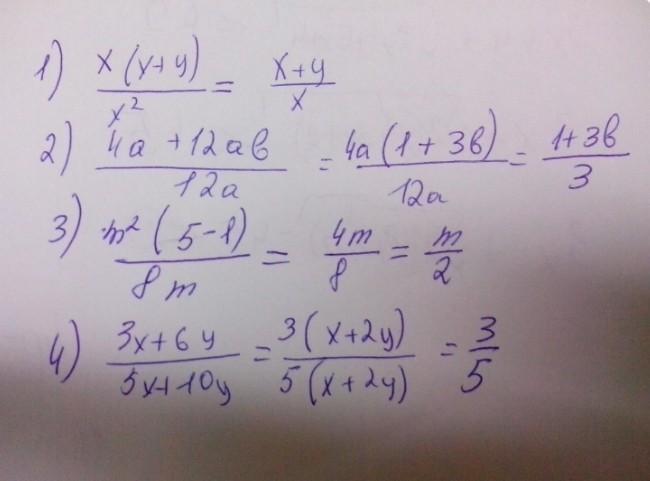 1) x(x+y)/x² = x+y/x
2) 4a+12ab/12a = 4a(1+3b)/12a = 1+3b/3
3) m²(5-1)/8m = 4m/8 = m/2
4) 3x+6y/5x+10y = 3(x+2y)/5(x+2y) = 3/5